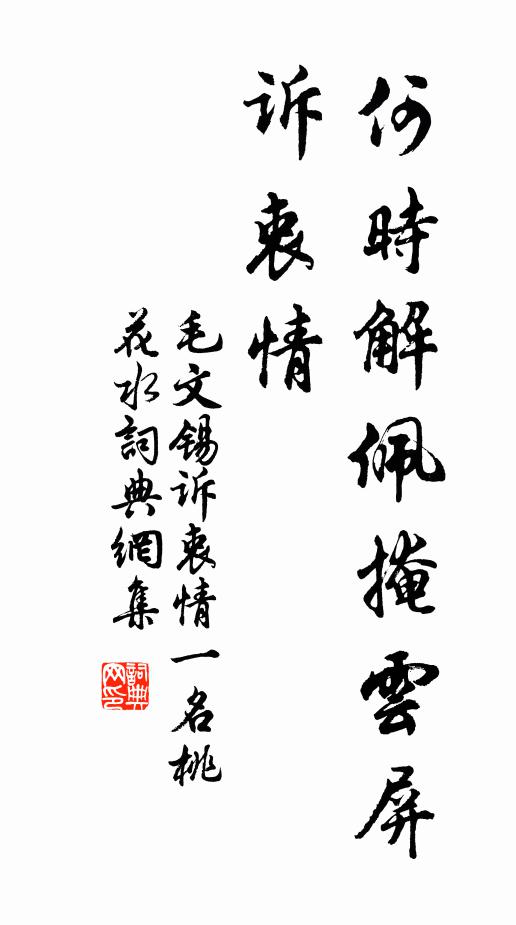 何時解佩掩雲屏
訴衷情
毛文錫訴衷情一名桃
花水詞典網集
詞典
网印